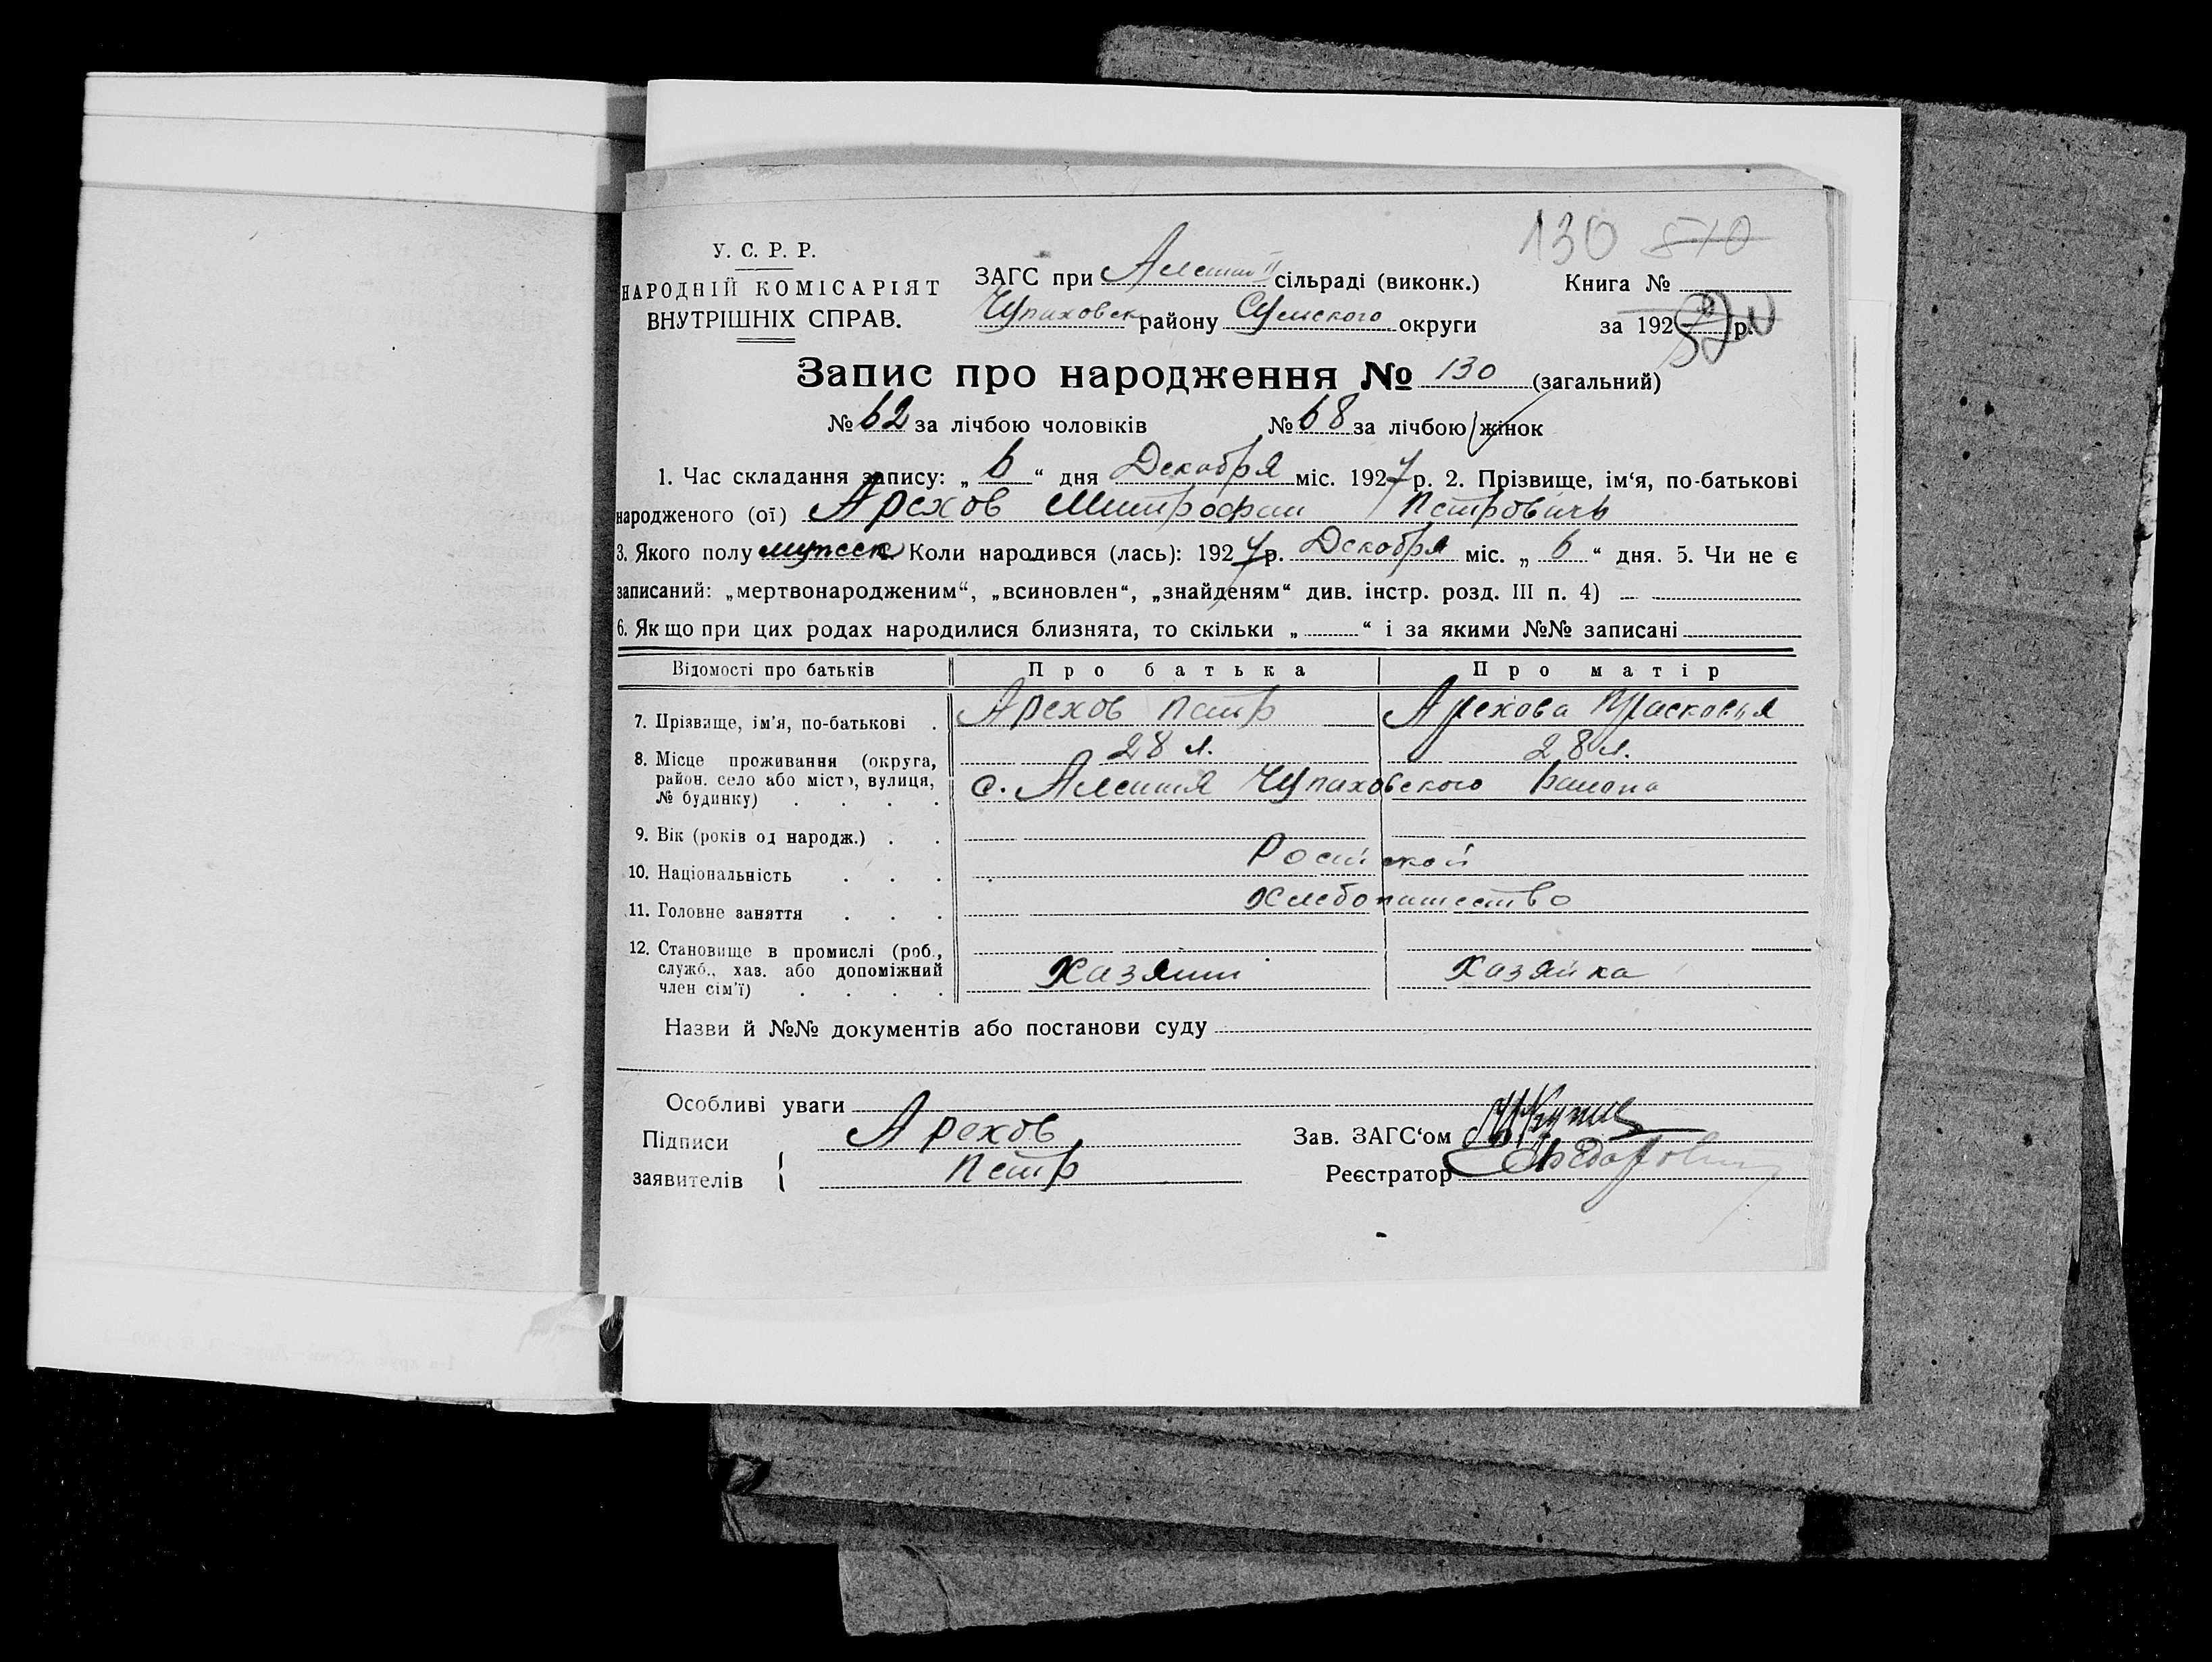 130 510
У. С. Р. Р.
НАРОДНІЙ КОМІСАРІЯТ
ВНУТРІШНІХ СПРАВ.
ЗАГС при Алешня II сільраді (виконк.) Книга №
Чупаховск району Сумского округи за 192 р.
Запис про народження № 130 (загальний)
№ 62 за лічбою чоловіків № 68 за лічбою жінок
1. Час складання запису: „ 6 “ дня Декабря міс. 1927 р. 2. Прізвище, ім‘я, по-батькові
народженого (ої) Арехов Митрофан Петровичь
3. Якого полу мужеск Коли народився (лась): 1927 р. Декабря міс. „ 6 “ дня. 5. Чи не є
записаний: „мертвонародженим“, „всиновлен“, „знайденям“ див. інстр. розд. III п. 4) —
6. Якщо при цих родах народилися близнята, то скільки „ “ і за якими №№ записані
Відомості про батьків Про батька Про матір
7. Прізвище, ім’я, по-батькові . Арехов Петр Арехова Прасковья
28 л. 28 л.
8. Місце проживання (округа,
район, село або місто, вулиця,
№ будинку) . . . . с. Алешня Чупаховского Района
9. Вік (років од народж.) . .
10. Національність . . . Росийской
11. Головне заняття . . . Хлебопашество
12. Становище в промислі (роб.,
служб., хаз. або допоміжний
член сім’ї) . . . . Хазяин Хазяйка
Назви й №№ документів або постанови суду
Особливі уваги
Підписи Арехов Зав. ЗАГС‘ом
заявителів Петр Реєстратор